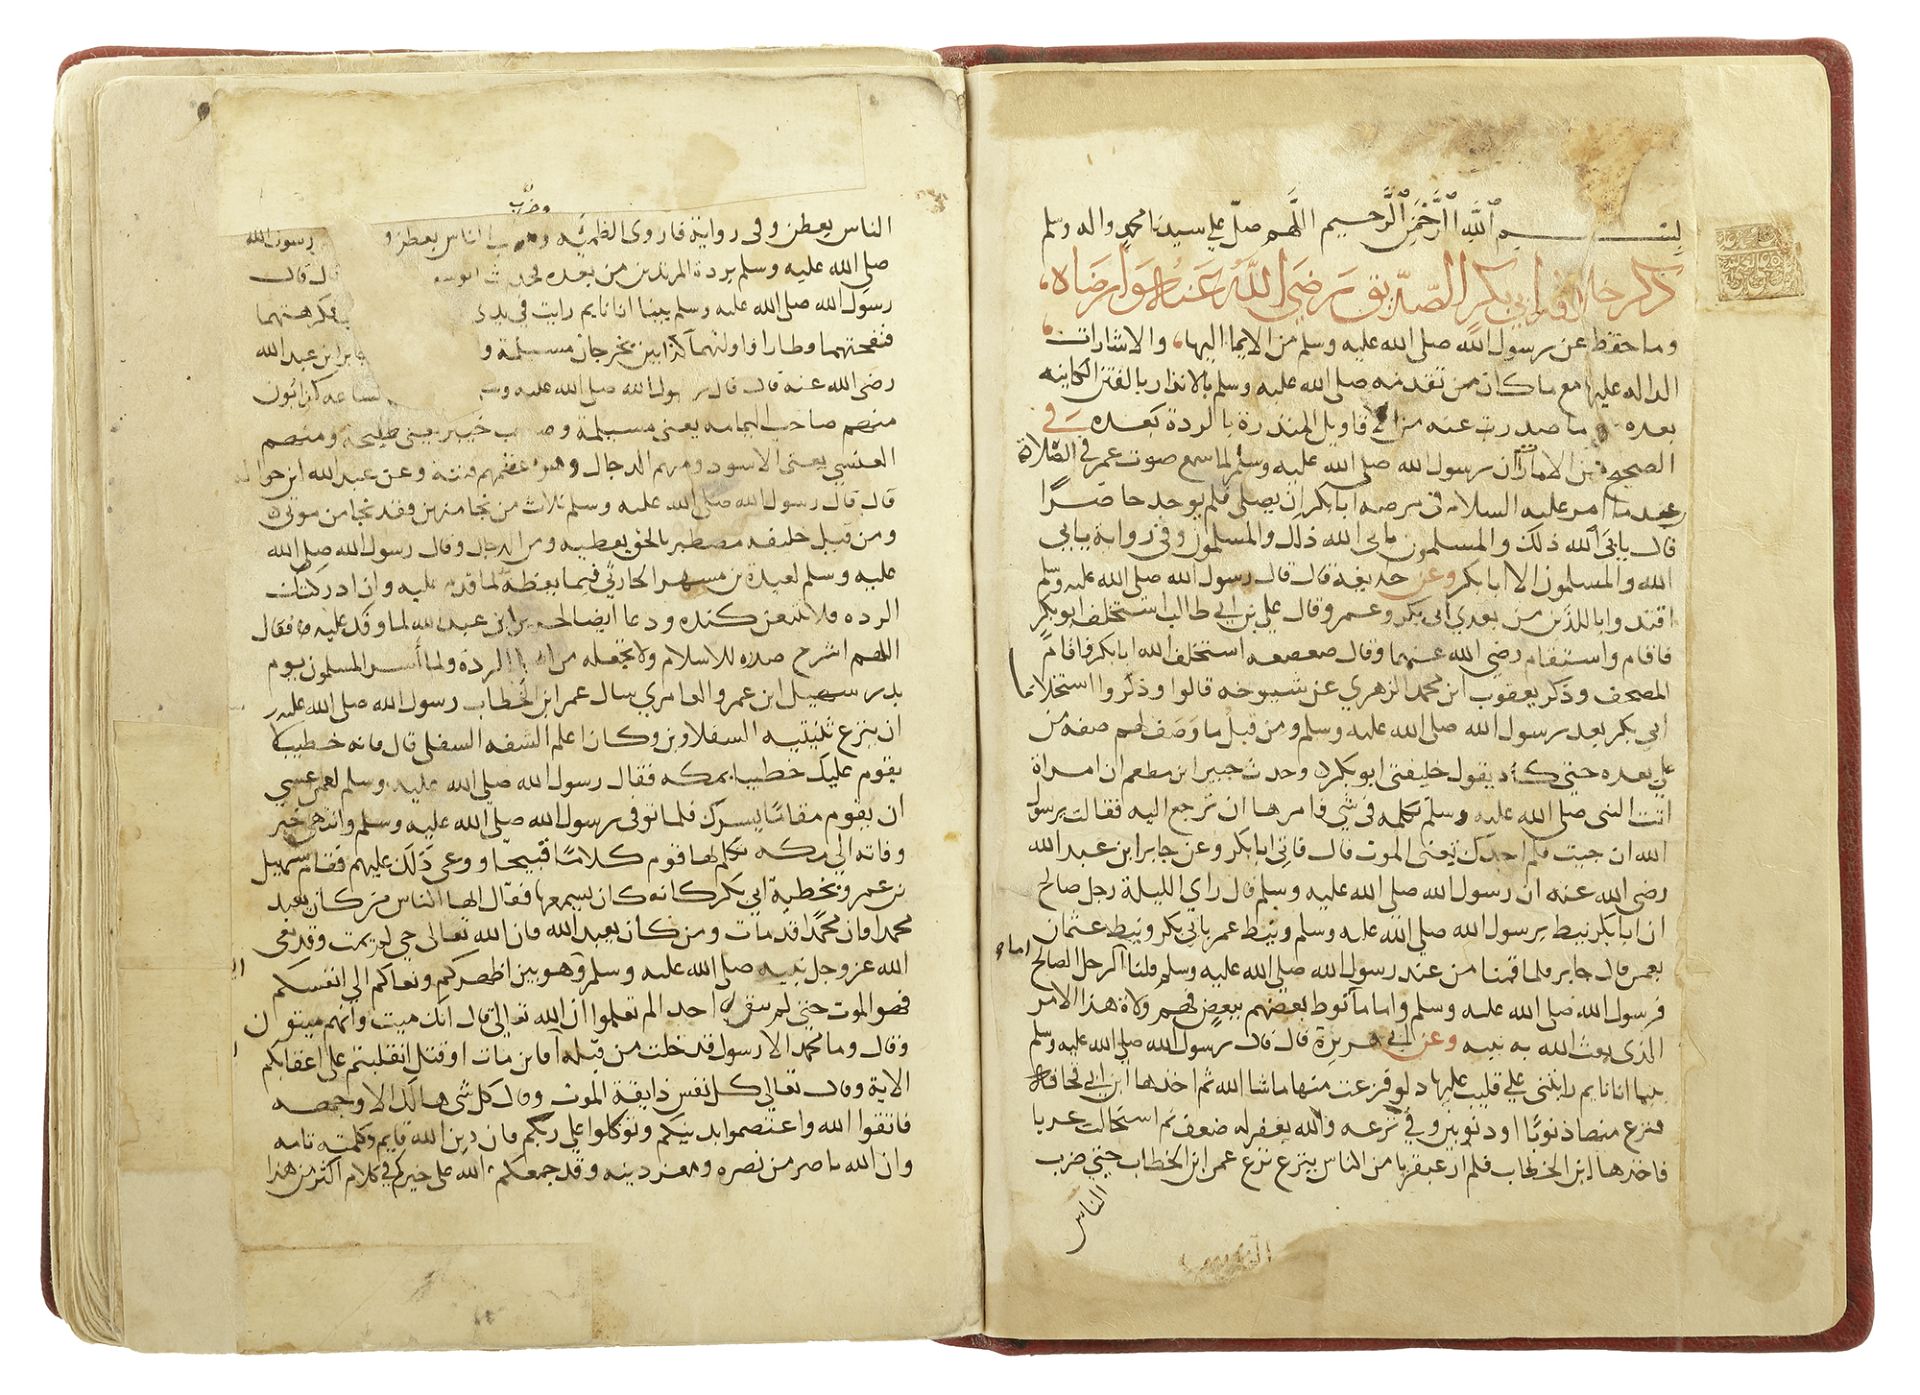 بسم الله الرحمن الرحيم اللهم صل علي سيدنا محمد واله وسلم
ذكر خلافة ابي بكر الصديق رضي الله عنه وارضاه
وما حفظ عن رسول الله صلى الله عليه وسلم من الايما اليها والاشارات
الداله عليها مع ما كان من تقدمه صلى الله عليه وسلم بالانذار بالفتن الكاينه
بعده ما صدرت عنه من الاقاويل المنذرة بالردة بعده في
الصحيح من الامارات ان رسول الله صلى الله عليه وسلم لما سمع صوت عمر في الصلاة
عندما امر عليه السلام في مرضه ابا بكر ان يصلي فلم يوجد حاضرا
قال يابى الله ذلك والمسلمون يابى الله ذلك والمسلمون وفي رواية يابي
الله والمسلمون الا ابا بكر وعن حذيفة قال قال رسول الله صلى الله عليه وسلم
اقتدوا باللذين من بعدي ابي بكر وعمر وقال علي بن ابي طالب استخلف ابو بكر
فاقام واستقام رضي الله عنهما وقال صعصعه استخلف الله ابا بكر فاقام
المصحف وذكر يعقوب ابن محمد الزهري عن شيوخه قالوا وذكروا استخلاف
ابي بكر بعد رسول الله صلى الله عليه وسلم ومن قبل ما وصف لهم صفه من
يلي بعده حتى كاد يقول خليفتى ابو بكر وحدث جبير ابن مطعم ان امراة
اتت النبي صلى الله عليه وسلم تكلمه في شي فامرها ان ترجع اليه فقالت يرسول
الله ان جيت فلم اجدك تعنى الموت قال فاتي ابا بكر وعن جابر ابن عبد الله
رضى الله عنه ان رسول الله صلى الله عليه وسلم قال راي الليلة رجل صالح
ان ابا بكر نيط برسول الله صلى الله عليه وسلم ونيط عمر بابي بكر ونيط عثمان
بعمر قال جابر فلما قمنا من عند رسول الله صلى الله عليه وسلم قلنا اما الرجل الصالح
فرسول الله صلى الله عليه وسلم واما ما نوط بعضهم ببعض فهم ولاة هذا الامر
الذي بعث الله به نبيه وعن ابي هريرة قال قال رسول الله صلى الله عليه وسلم
بينا انا نايم رايتني على قليب عليها دلو فنزعت منها ما شا الله ثم اخذها ابن ابي قحافة
فنزع منها ذنوبا او ذنوبين وفي نزعه والله يغفر له ضعف ثم استحالت غربا
فاخذها ابن الخطاب فلم ار عبقريا من الناس ينزع نزع عمر ابن الخطاب حتى ضرب
الناس
وضرب
الناس بعطن وفى رواية فاروى الظمئه الناس بعطن و رسول الله
صلى الله عليه وسلم بردة المرتدين من بعده قال قال
رسول الله صلى الله عليه وسلم بينا انا نايم رايت في يدي فكرهتهما
فنفختهما وطارا واولتهما كذابين يخرجان مسيلمة و جابر ابن عبد الله
رضى الله عنه قال قال رسول الله صلى الله عليه الساعه كذابون
منهم صاحب اليمامه يعني مسيلمة حمير يعني طليحة ومنهم
العنسي يعنى الاسود ومنهم الدجال وهو اعظمهم فتنة وعن عبد الله ابن حواله
قال قال رسول الله صلى الله عليه وسلم ثلاث من نجا منهن فقد نجا من موتي
ومن قبل خليفه مصطبر بالحق يعطيه ومن الدجال وقال رسول الله صلى الله
عليه وسلم لعبيدة بن مسهر الحارثي فيما يعظه لما قدم عليه وان ادركتك
الرده فلا تتبعن كنده ودعا ايضا لجرير ابن عبد الله لما وفد عليه فقال
اللهم اشرح صدره للاسلام ولا تجعله من اهل الردة ولما اسر المسلمون يوم
بدر سهيل ابن عمرو العامري سال عمر ابن الخطاب رسول الله صلى الله عليه
ان ينزع ثنيتيه السفلاوين وكان اعلم الشفه السفلى قال فانه خطيب
يقوم عليك خطيبا بمكه فقال رسول الله صلى الله عليه وسلم لعمر عسى
ان يقوم مقاما يسرك فلما توفى رسول الله صلى الله عليه وسلم وانتهى خبر
وفاته الي مكه تكلم بها قوم كلاما قبيحا ووعى ذلك عليهم فقام سهيل
بن عمرو بخطبة ابي بكر كانه كان يسمعها فقال ايها الناس من كان يعبد
محمدا فان محمدا قد مات ومن كان يعبد الله فان الله تعالى حي لم يمت وقد نعى
الله عز وجل نبيه صلى الله عليه وسلم وهو بين اظهركم ونعاكم الى انفسكم
فهو الموت حتى لم يبق احد الم تعلموا ان الله تعالى قال انك ميت وانهم ميتون
وقال وما محمد الا رسول قد خلت من قبله افاين مات او قتل انقلبتم على اعقابكم
الاية وقال تعالى كل نفس ذايقة الموت وقال كل شي هالك الا وجهه
فاتقوا الله واعتصموا بدينكم وتوكلوا على ربكم فان دين الله قايم وكلمته تامه
وان الله ناصر من نصره ومعز دينه وقد جمعكم الله على خيركم في كلام اكثر من هذا